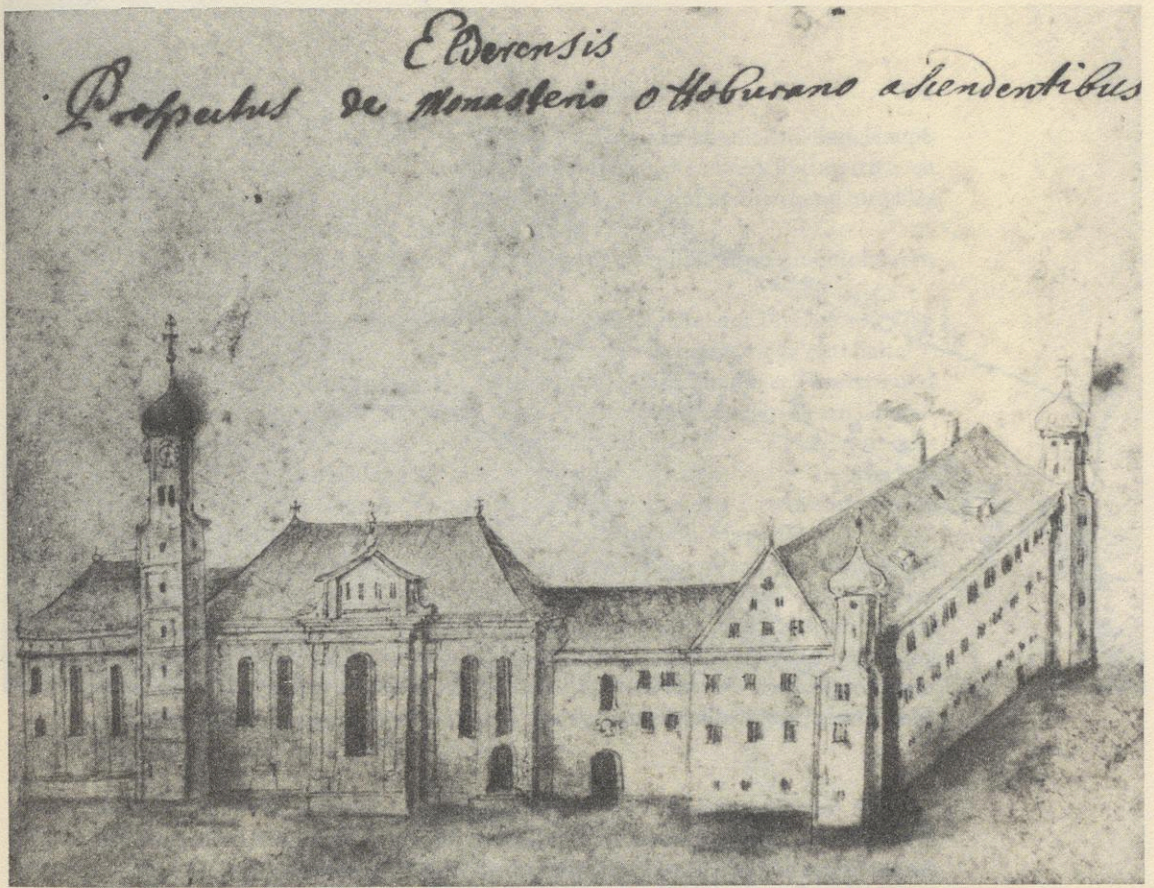 Elderensis
Prospectus de Monasterio ottoburano ascendentibus